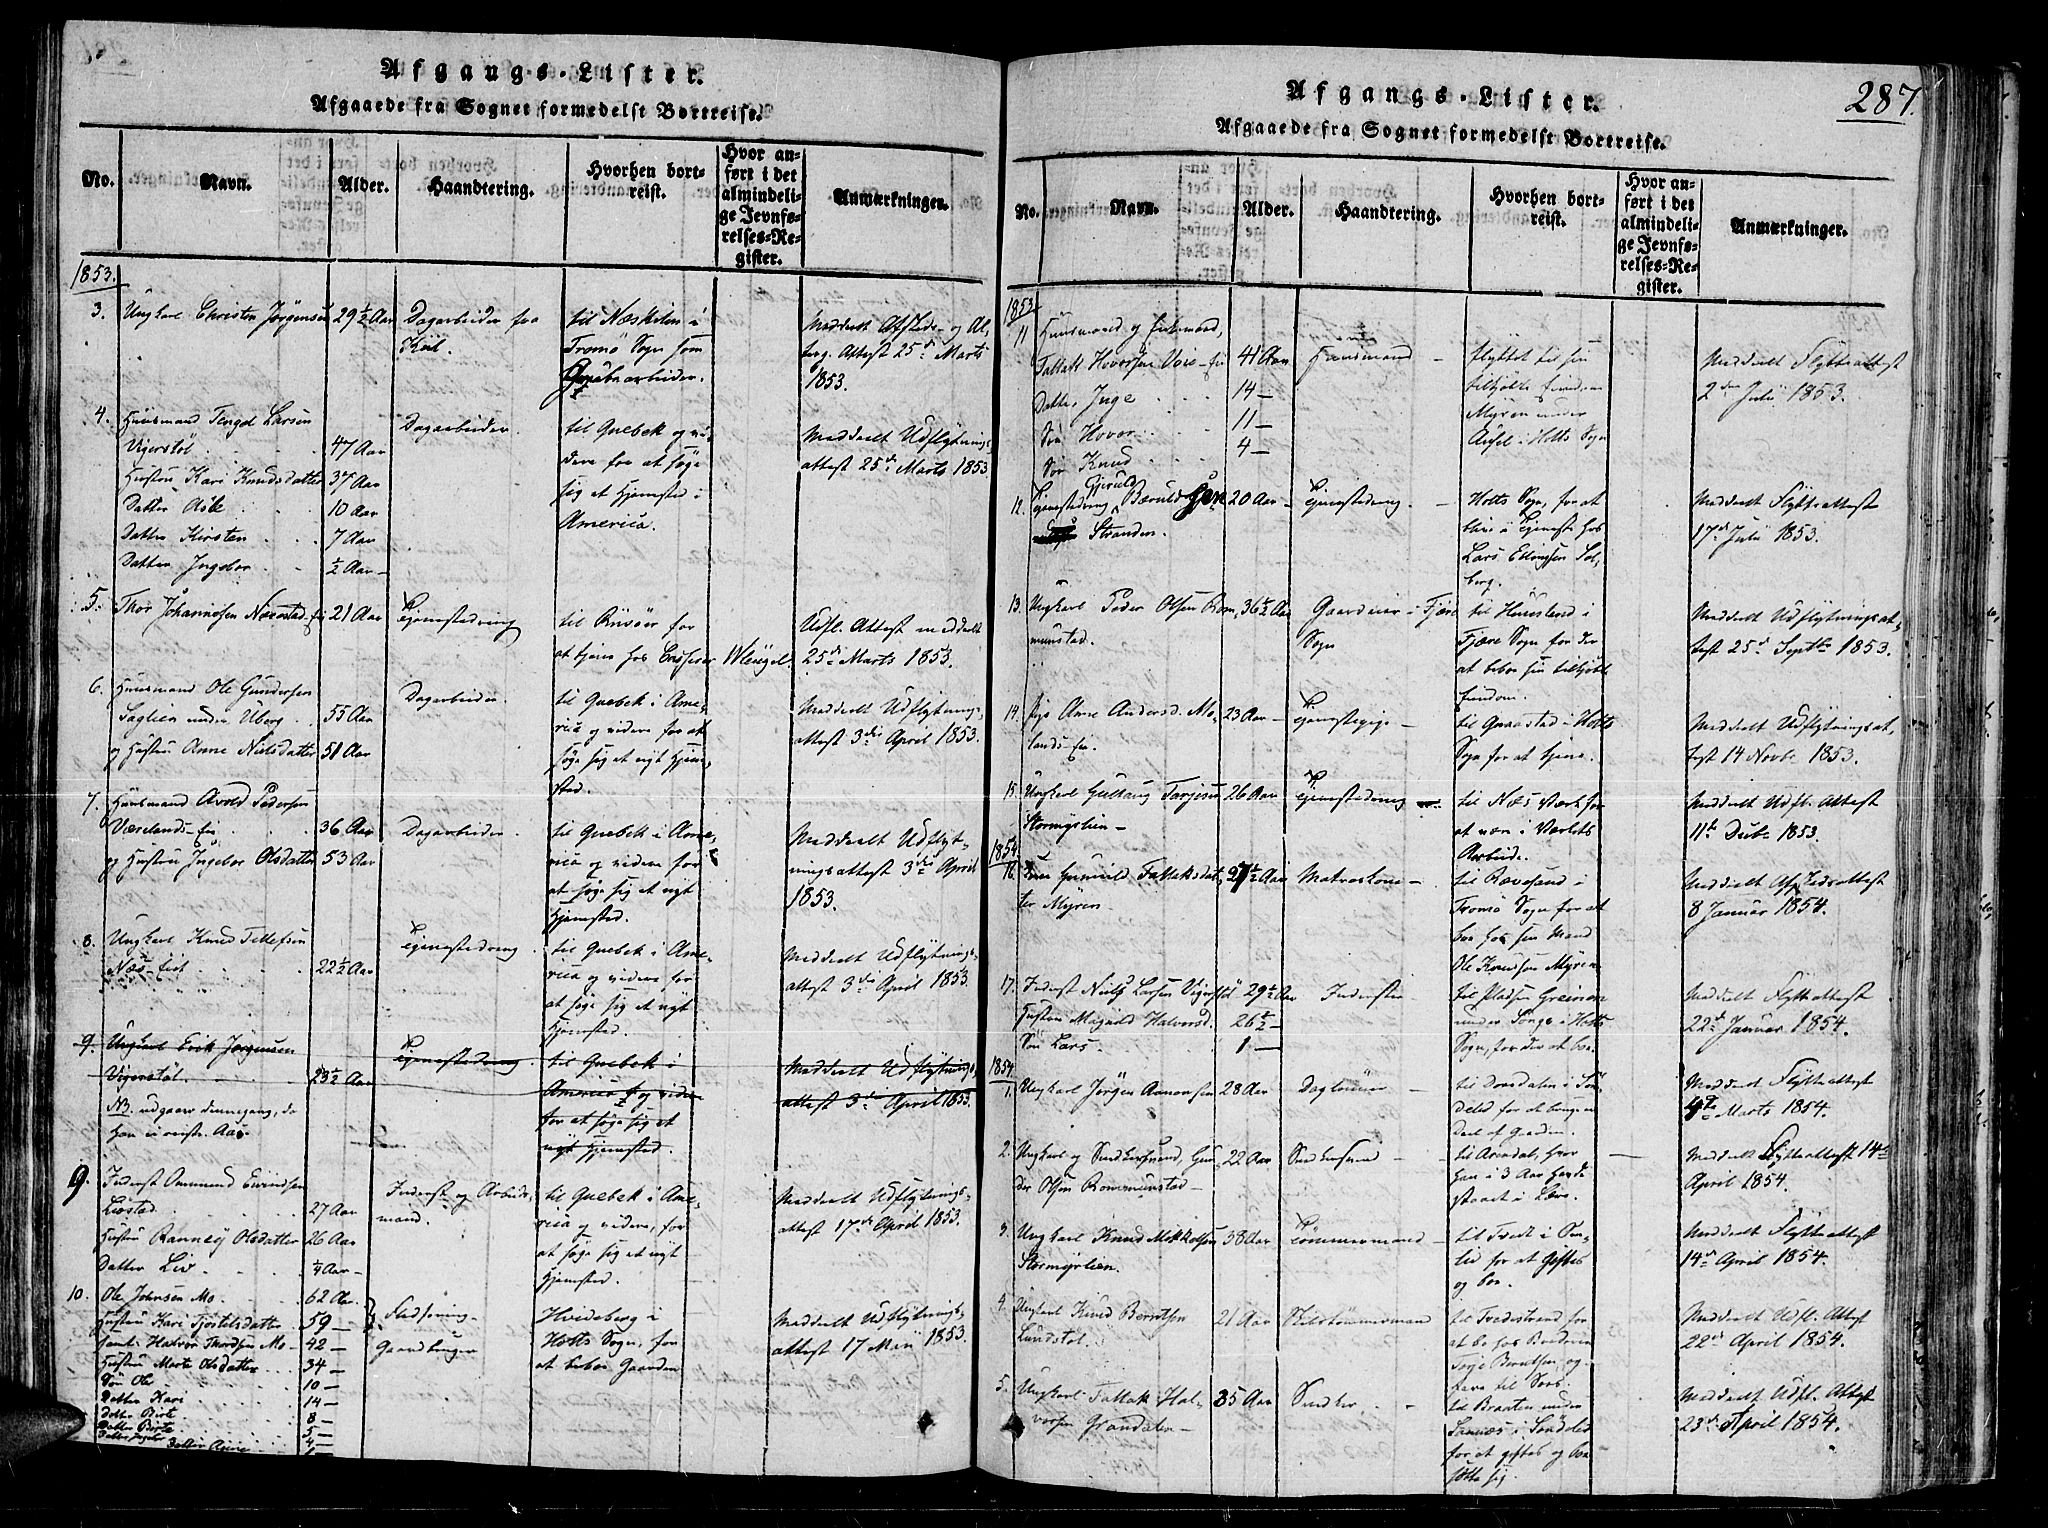 Afgangs-Lister.
Afgaaede fra Sognet formedelst Bortreise.
No.
Navn.
Alder.
Haandtering.
Hvorhen bort-
reist.
Hvor an-
ført i det
almindeli-
ge Jevnfø-
relses-Re-
gister.
Anmærkninger.
1853.
3.
Ungkarl Christen Jörgensen
29½ Aar
Dagarbeider fra
Kiil.
til Næskilen i
Tromö Sogn som
Grubearbeider.
Meddeelt Afsteds- og
Attest 25de Marts
1853.
4.
Huusmand Tengel Larsen
Vigerstöl
47 Aar
Hustru Kari Knudsdatter
37 Aar
Datter Asle
10 Aar
Datter Kirsten
7 Aar
Datter Ingebor
½ Aar
Dagarbeider.
til Quebek og vi-
dere for at söge
sig et Hjemsted i
America.
Meddeelt Udflytnings-
attest 25de Marts 1853.
5.
Thor Johannesen Næsstad-
21 Aar
Tjenestedreng
til Risöer for
at tjene hos
Udfl. Attest meddeelt
25de Marts 1853.
6.
Huusmand Ole Gundersen
Saglien under Uberg
55 Aar
og Hustru Anne Nielsdatter
51 Aar
Dagarbeider
til Quebek i Ame-
rica og videre for at
söge sig et nyt Hjem-
sted.
Meddeelt Udflytnings-
attest 3die April 1853.
7.
Huusmand Avold Pedersen
Værelands-
36 Aar
og Hustru Ingebor Olsdatter
53 Aar
Dagarbeider.
til Quebek i Ame-
rica og videre for
at söge sig et nyt
Hjemsted.
Meddeelt Udflyt-
ningsattest 3die April
1853.
8.
Ungkarl Knud Tellefsen
Næs-
22½ Aar
Tjenestedreng
til Quebek i Ame-
rica og videre for
at söge sig et nyt
Hjemsted.
Meddeelt Udflytnings-
attest 3die April 1853.
9.
Ungkarl Erik Jørgensen
Vigerstøl
23½ Aar
NB. udgaaer dennegang, da
han ei reiste. Aas.
Tjenestedreng
til Quebek i
America og videre
for at söge sig et
nyt Hjemsted.
Meddeelt Udflytnings-
attest 3die April 1853.
9.
Inderst Ommund Evindsen
Liestad
27 Aar
Hustru Ranney Olsdatter
26 Aar
Datter Liv
¼ Aar
Inderst og Arbeids-
mand.
til Quebek i Ame-
rica og videre, for
at söge sig et nyt
Hjemsted.
Meddeelt Udflytnings-
attest 17de April 1853.
10.
Ole Johnsen Mo
62 Aar
Hustru Kari Kjostelsdatter
59
samt Halvor Thordsen Mo
42
Hustru Marte Olsdatter
34
Sön Ole
10
Datter Kari
14
Datter Birte
8
Datter Birte
5
Datter Ingebor
4
Datter Anne
Gaardbruger
Hvideberg i
Holts Sogn, for
at beboe Gaarden
Meddeelt Udflytnings-
attest 17 Mai 1853.
287.
Afgangs-Lister.
Afgaaede fra Sognet formedelst Bortreise.
No.
Navn.
Alder.
Haandtering.
Hvorhen bort-
reist.
Hvor an-
ført i det
almindeli-
ge Jevnfø-
relses-Re-
gister.
Anmærkninger.
1853
11
Huusmand og
Tallak Hovorsen Voie
41 Aar
Datter, Inge
14
Sön Hovor
11
Sön Knud
4
Huusmand
flyttet til sin
tilkjöbte Eiendom
Myren under
i Holts Sogn
Meddeelt Flytteattest
2den Juli 1853.
12.
Tjenestedreng
Gjeruld
Stranden.
20 Aar
Tjenestedreng
Holts Sogn, for at
blive i Tjeneste hos
Lars Ellingsen Sol-
berg.
Meddeelt Flytteattest
17de Juli 1853.
13.
Ungkarl Peder Olsen Rom-
munstad.
36½ Aar
Gaardeier i Fjære
Sogn
til Hæresland i
Fjære Sogn for der
at beboe sin tilkjöbte
Eiendom.
Meddeelt Udflytningsat-
test 25de Septbr 1853.
14.
Pige Anne Andersd. Mo-
lands-
23 Aar
Tjenestepige
til Graastad i Holts
Sogn for at tjene.
Meddeelt Udflytningsat-
test 14 Novbr 1853.
15
Ungkarl Gulleug Tarjesen
Stormyrlien
26 Aar
Tjenestedreng
til Næs Værk for
at være i Værkets
Arbeide.
Meddeelt Udfl. Attest
11te Decbr 1853.
1854
16
Gunvild Tallaksdat-
ter Myren
27½ Aar
Matroskone
til Rævesand i
Tromö Sogn for at
boe hos sin Mand
Ole Knudsen Myren
Meddeelt Afstedsattest
8 Januar 1854.
17.
Inderst Niels Larsen Vigerstöl
29½ Aar
Hustru Magnild Halvorsd.
26½
Sön Lars.
1
Inderster
til Pladsen Greinen
under Songe i Holts
Sogn, for der at boe.
Meddeelt Flytteattest
22de Januar 1854.
1854.
1.
Ungkarl Jörgen Aanonsen
28 Aar
Daglönner
til Dorsdalen i Sön-
deled for at bruge en
Deel af Gaarden.
Meddeelt Flytteattest
4de Marts 1854.
2.
Ungkarl og Snedkersvend, Gun-
der Olsen Rommunstad
22 Aar
Snedkersvend
til Arendal, hvor
han i 3 Aar havde
staaet i Lære.
Meddeelt Flytteattest 14de
April 1854.
3.
Ungkarl Knud Mikkelsen
Stormyrlien.
38 Aar
Tömmermand
til Tvedt i Sön-
deled for at giftes
og boe.
Meddeelt Flytteattest
14de April 1854.
4.
Ungkarl Knud Berntsen
Lundstöl
21 Aar
Skibstömmermand
til Tvedestrand for
at boe hos Broderen
Berntsen og
fare til Söes.
Meddeelt Udfl. Attest
22de April 1854.
5.
Ungkarl Tallak Hal-
vorsen Grandalen
35 Aar
Snedker
til Braaten under
i Söndeled
for at giftes og boe
Meddeelt Udfl. Attest
23de April 1854.